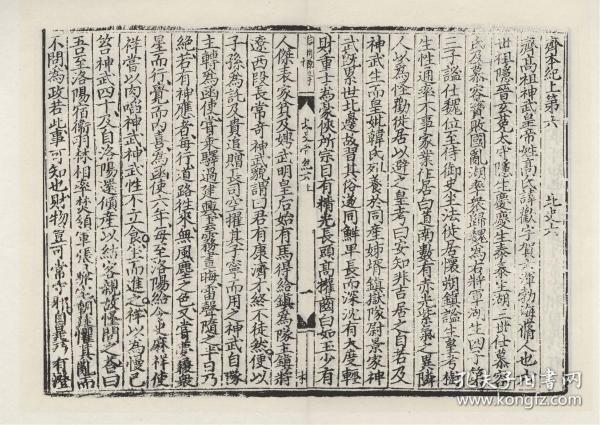 齊本紀上第六 北史六
齊高祖神武皇帝姓高氏諱歡字賀六渾勃海蓚人也六
世祖隱晉玄菟太守隱生慶慶生泰泰生湖三世仕慕容
氏及慕容寶敗國亂湖率衆歸魏為右將軍湖生四子第
三子謐仕魏位至侍御史坐法徙居懷朔鎮謐生皇考樹
生性通率不事家業住居白道南數有赤光紫氣之異隣
人以為怪勸徙居以避之皇考曰安知非吉居之自若及
神武生而皇妣韓氏殂養於同產姊壻鎮獄隊尉景家神
武旣累世北邊故習其俗遂同鮮卑長而深沈有大度輕
財重士為豪俠所宗目有精光長頭高顴齒白如玉少有
人傑表家貧及娉武明皇后始有馬得給鎮為隊主鎮將
遼西段長常奇神武貌謂曰君有康濟才終不徒然便以
子孫為託及貴追贈長司空擢其子寧而用之神武自隊
主轉為函使嘗乘驛過建興雲霧晝晦雷聲隨之半日乃
絕若有神應者每行道路往來無風塵之色又嘗夢履衆
星而行覺而內喜為函使六年每至洛陽給令史麻祥使
祥嘗以肉啗神武神武性不立食坐而進之祥以為慢已
笞神武四十及自洛陽還傾產以結客親故怪問之荅曰
吾至洛陽宿衛羽林相率焚領軍張彝宅朝廷懼其亂而
不問為政若此事可知也財物豈可常守邪自是乃有澄
孔夫子旧书网
www.kongfz.com